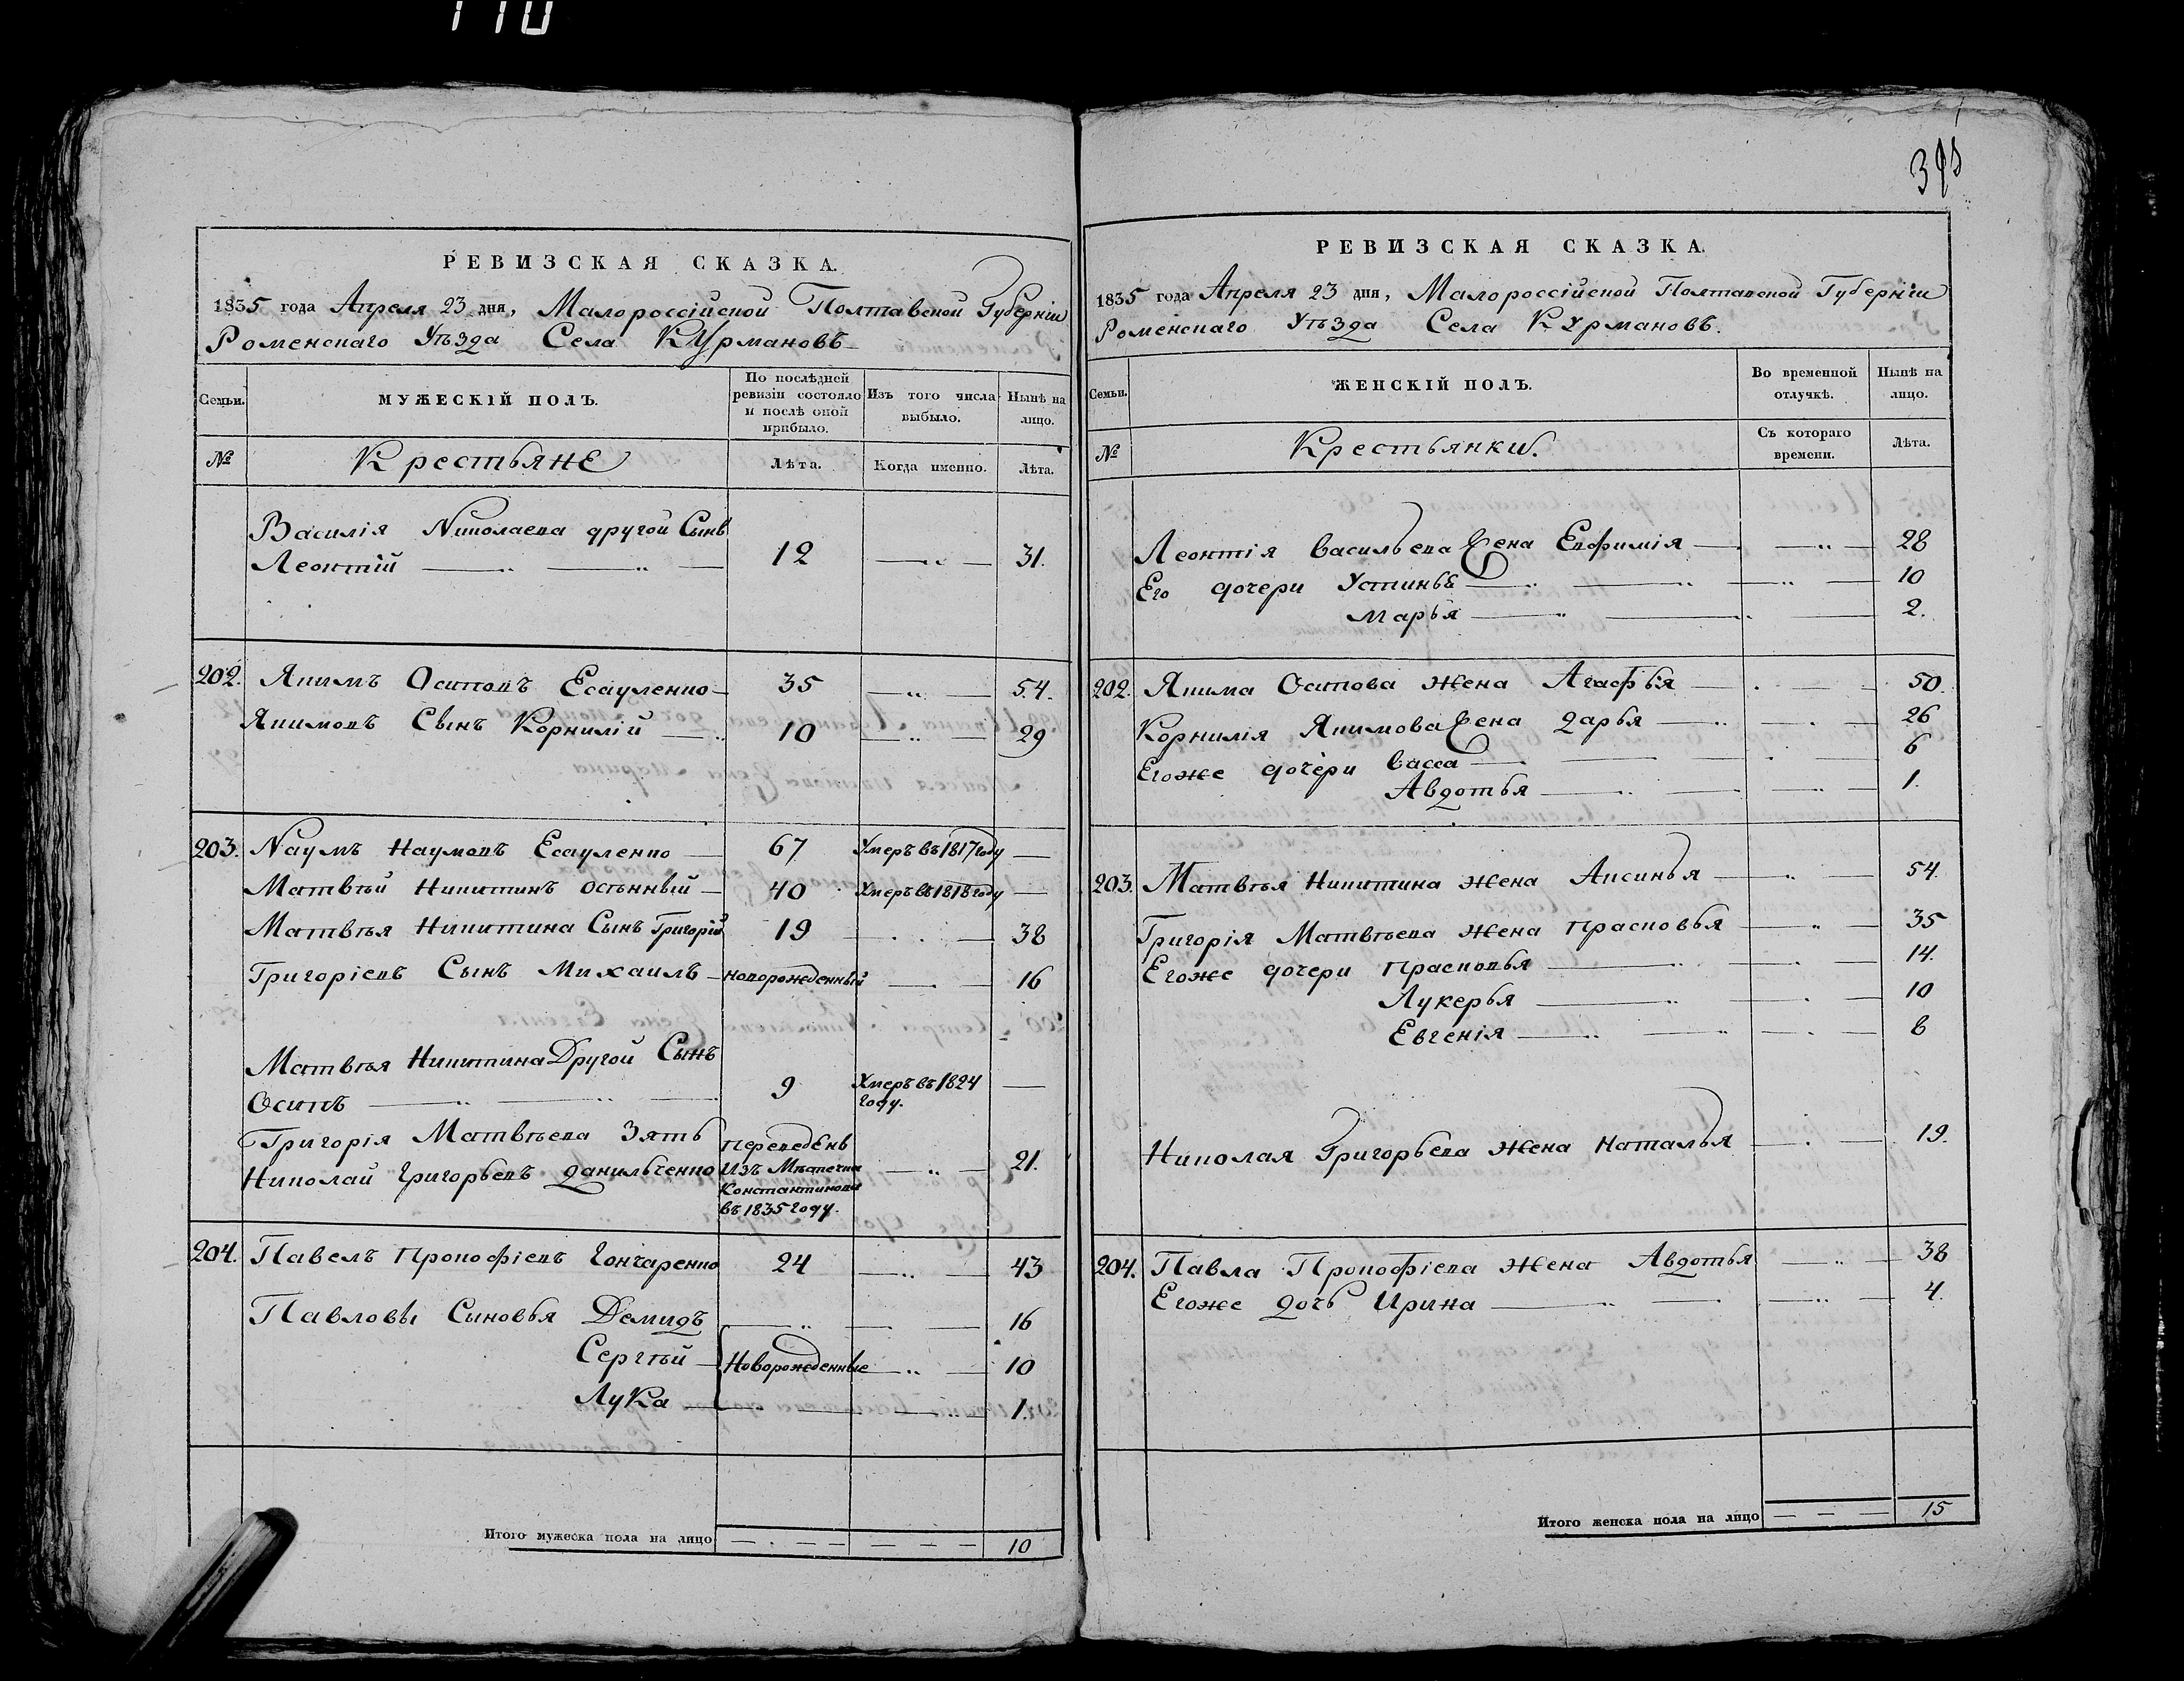 110
РЕВИЗСКАЯ СКАЗКА.
1835 года Апреля 23 дня, Малороссійской Полтавской Губерніи
Роменскаго Уѣзда Села Курмановъ
Семьи.
МУЖЕСКІЙ ПОЛЪ.
По послѣдней ревизіи состояло и послѣ оной прибыло.
Изъ того числа выбыло.
Нынѣ на лицо.
№
Крестьяне
Лѣта.
Когда именно.
Лѣта.
Василія Николаева другой Сынъ
Леонтій 12 31.
202. Якимъ Осиповъ Есауленко 35 54.
Якимовъ Сынъ Корнилій 10 29
203. Наумъ Наумовъ Есауленко 67 Умеръ въ 1817 году
Матвѣй Никитинъ 40 Умеръ въ 1818 году
Матвѣя Никитина Сынъ Григорій 19 38
Григоріевъ Сынъ Михаилъ новорожденный 16
Матвѣя Никитина Другой Сынъ
Осипъ 9 Умеръ въ 1824 году.
Григорія Матвѣева Зять
Николай Григорьевъ Данильченко
переведенъ
изъ Мѣстечка
Константинова
въ 1835 году.
21.
204. Павелъ Прокофіевъ Гончаренко 24 43
Павловы Сыновья Демидъ 16
Сергѣй Новорожденные 10
Лука 1.
Итого мужеска пола на лицо 10
РЕВИЗСКАЯ СКАЗКА.
1835 года Апреля 23 дня, Малороссійской Полтавской Губерніи
Роменскаго Уѣзда Села Курмановъ.
Семьи.
ЖЕНСКІЙ ПОЛЪ.
Во временной отлучкѣ.
Нынѣ на лицо.
№
Крестьянки.
Съ котораго времени.
Лѣта.
Леонтія Васильева Жена Евфимія 28
Его дочери Устинья 10
Марья 2.
202. Якима Осипова Жена Агафья 50.
Корнилія Якимова Жена Дарья 26
Егоже дочери Васса 6
Авдотья 1.
203. Матвѣя Никитина жена Аксинья 54.
Григорія Матвѣева жена Прасковья 35
Егоже дочери Прасковья 14.
Лукерья 10
Евгенія 6
Николая Григорьева жена Наталья 19.
204. Павла Прокофіева жена Авдотья 38
Егоже дочь Ирина 4.
Итого женска пола на лицо 15